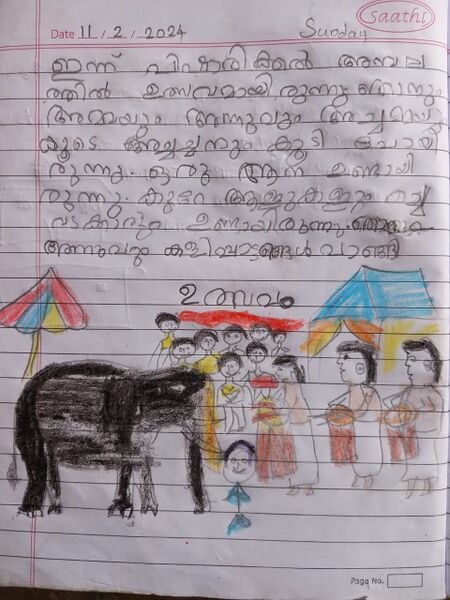 Saathi
Date 11 / 2 / 2024 Sunday
ഇന്ന് പിഷാരിക്കൽ അമ്പല
ത്തിൽ ഉത്സവമായിരുന്നു. ഞാനും
അമ്മയും അന്നുവും അച്ചമ്മയു
കൂടെ അച്ചച്ചനും കൂടി പോയി
രുന്നു. ഒരു ആന ഉണ്ടായി
രുന്നു. കുറേ ആളുകളും കച്ച
വടക്കാരും ഉണ്ടായിരുന്നു.
അന്നുവും കളിപ്പാട്ടങ്ങൾ വാങ്ങി
ഉത്സവം
Page No.